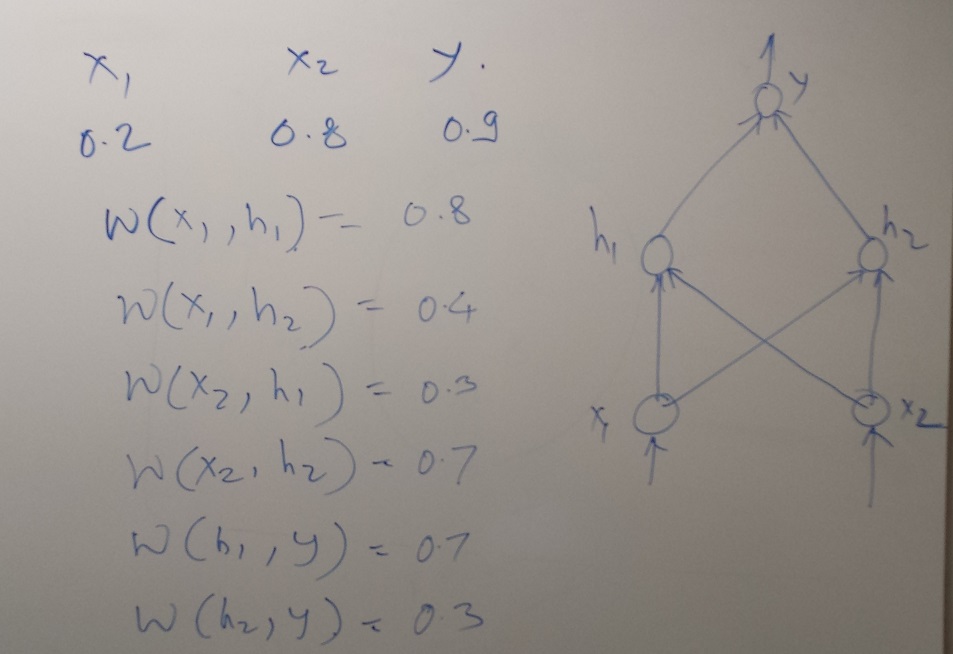 x₁ x₂ y.
0.2 0.8 0.9
W(x₁, h₁) = 0.8
W(x₁, h₂) = 0.4
W(x₂, h₁) = 0.3
W(x₂, h₂) = 0.7
W(h₁, y) = 0.7
W(h₂, y) = 0.3
y
h₁ h₂
x₁ x₂